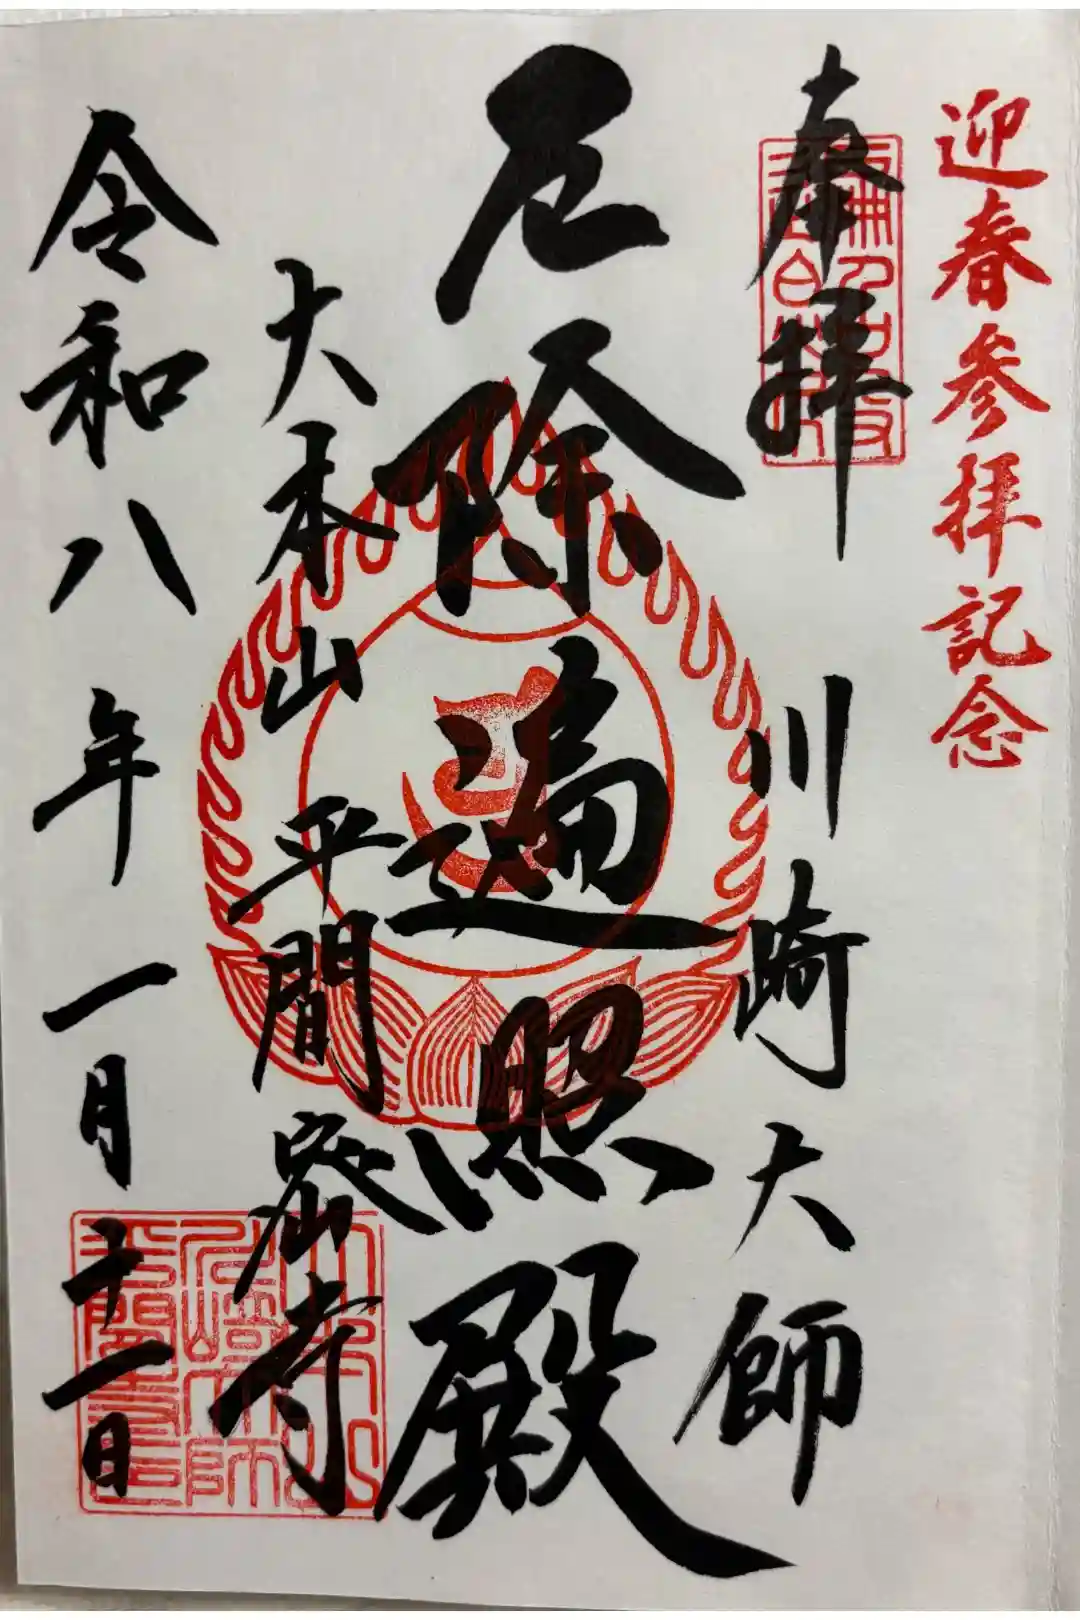 迎春参拝記念
奉拝
川崎大師
厄除遍照殿
大本山 平間密寺
令和八年一月十一日